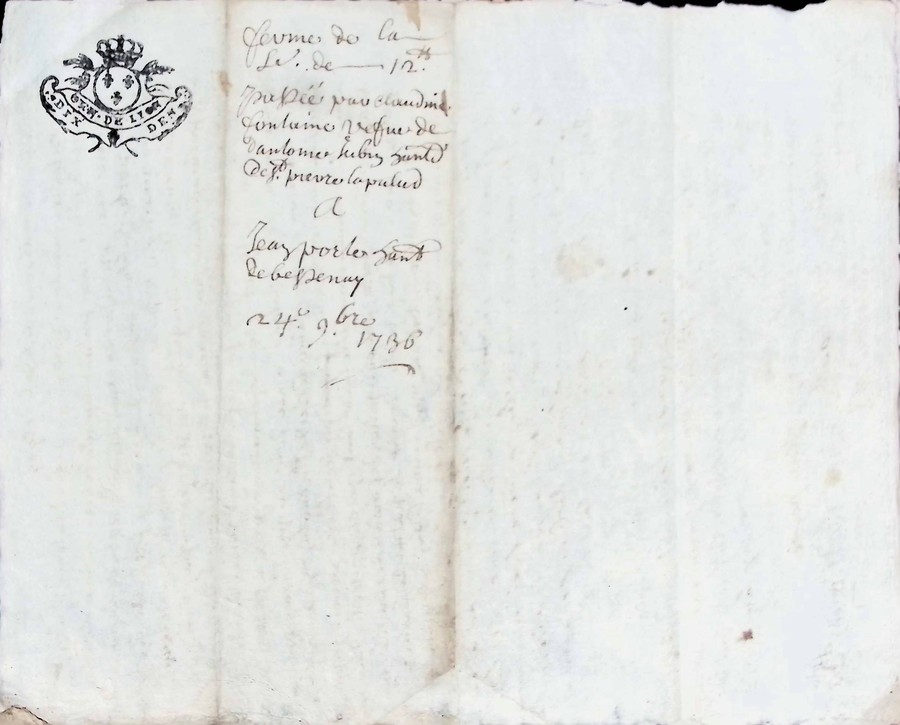 GEN. DE LYON
DIX DEN
ferme de la
Sr. de 12tt
passée par claudine
fontaine vefue de
dantoine Subrin hant
de St. pierre lapalud
A
Jean porte hant
de bessenay
24e. 9bre
1736